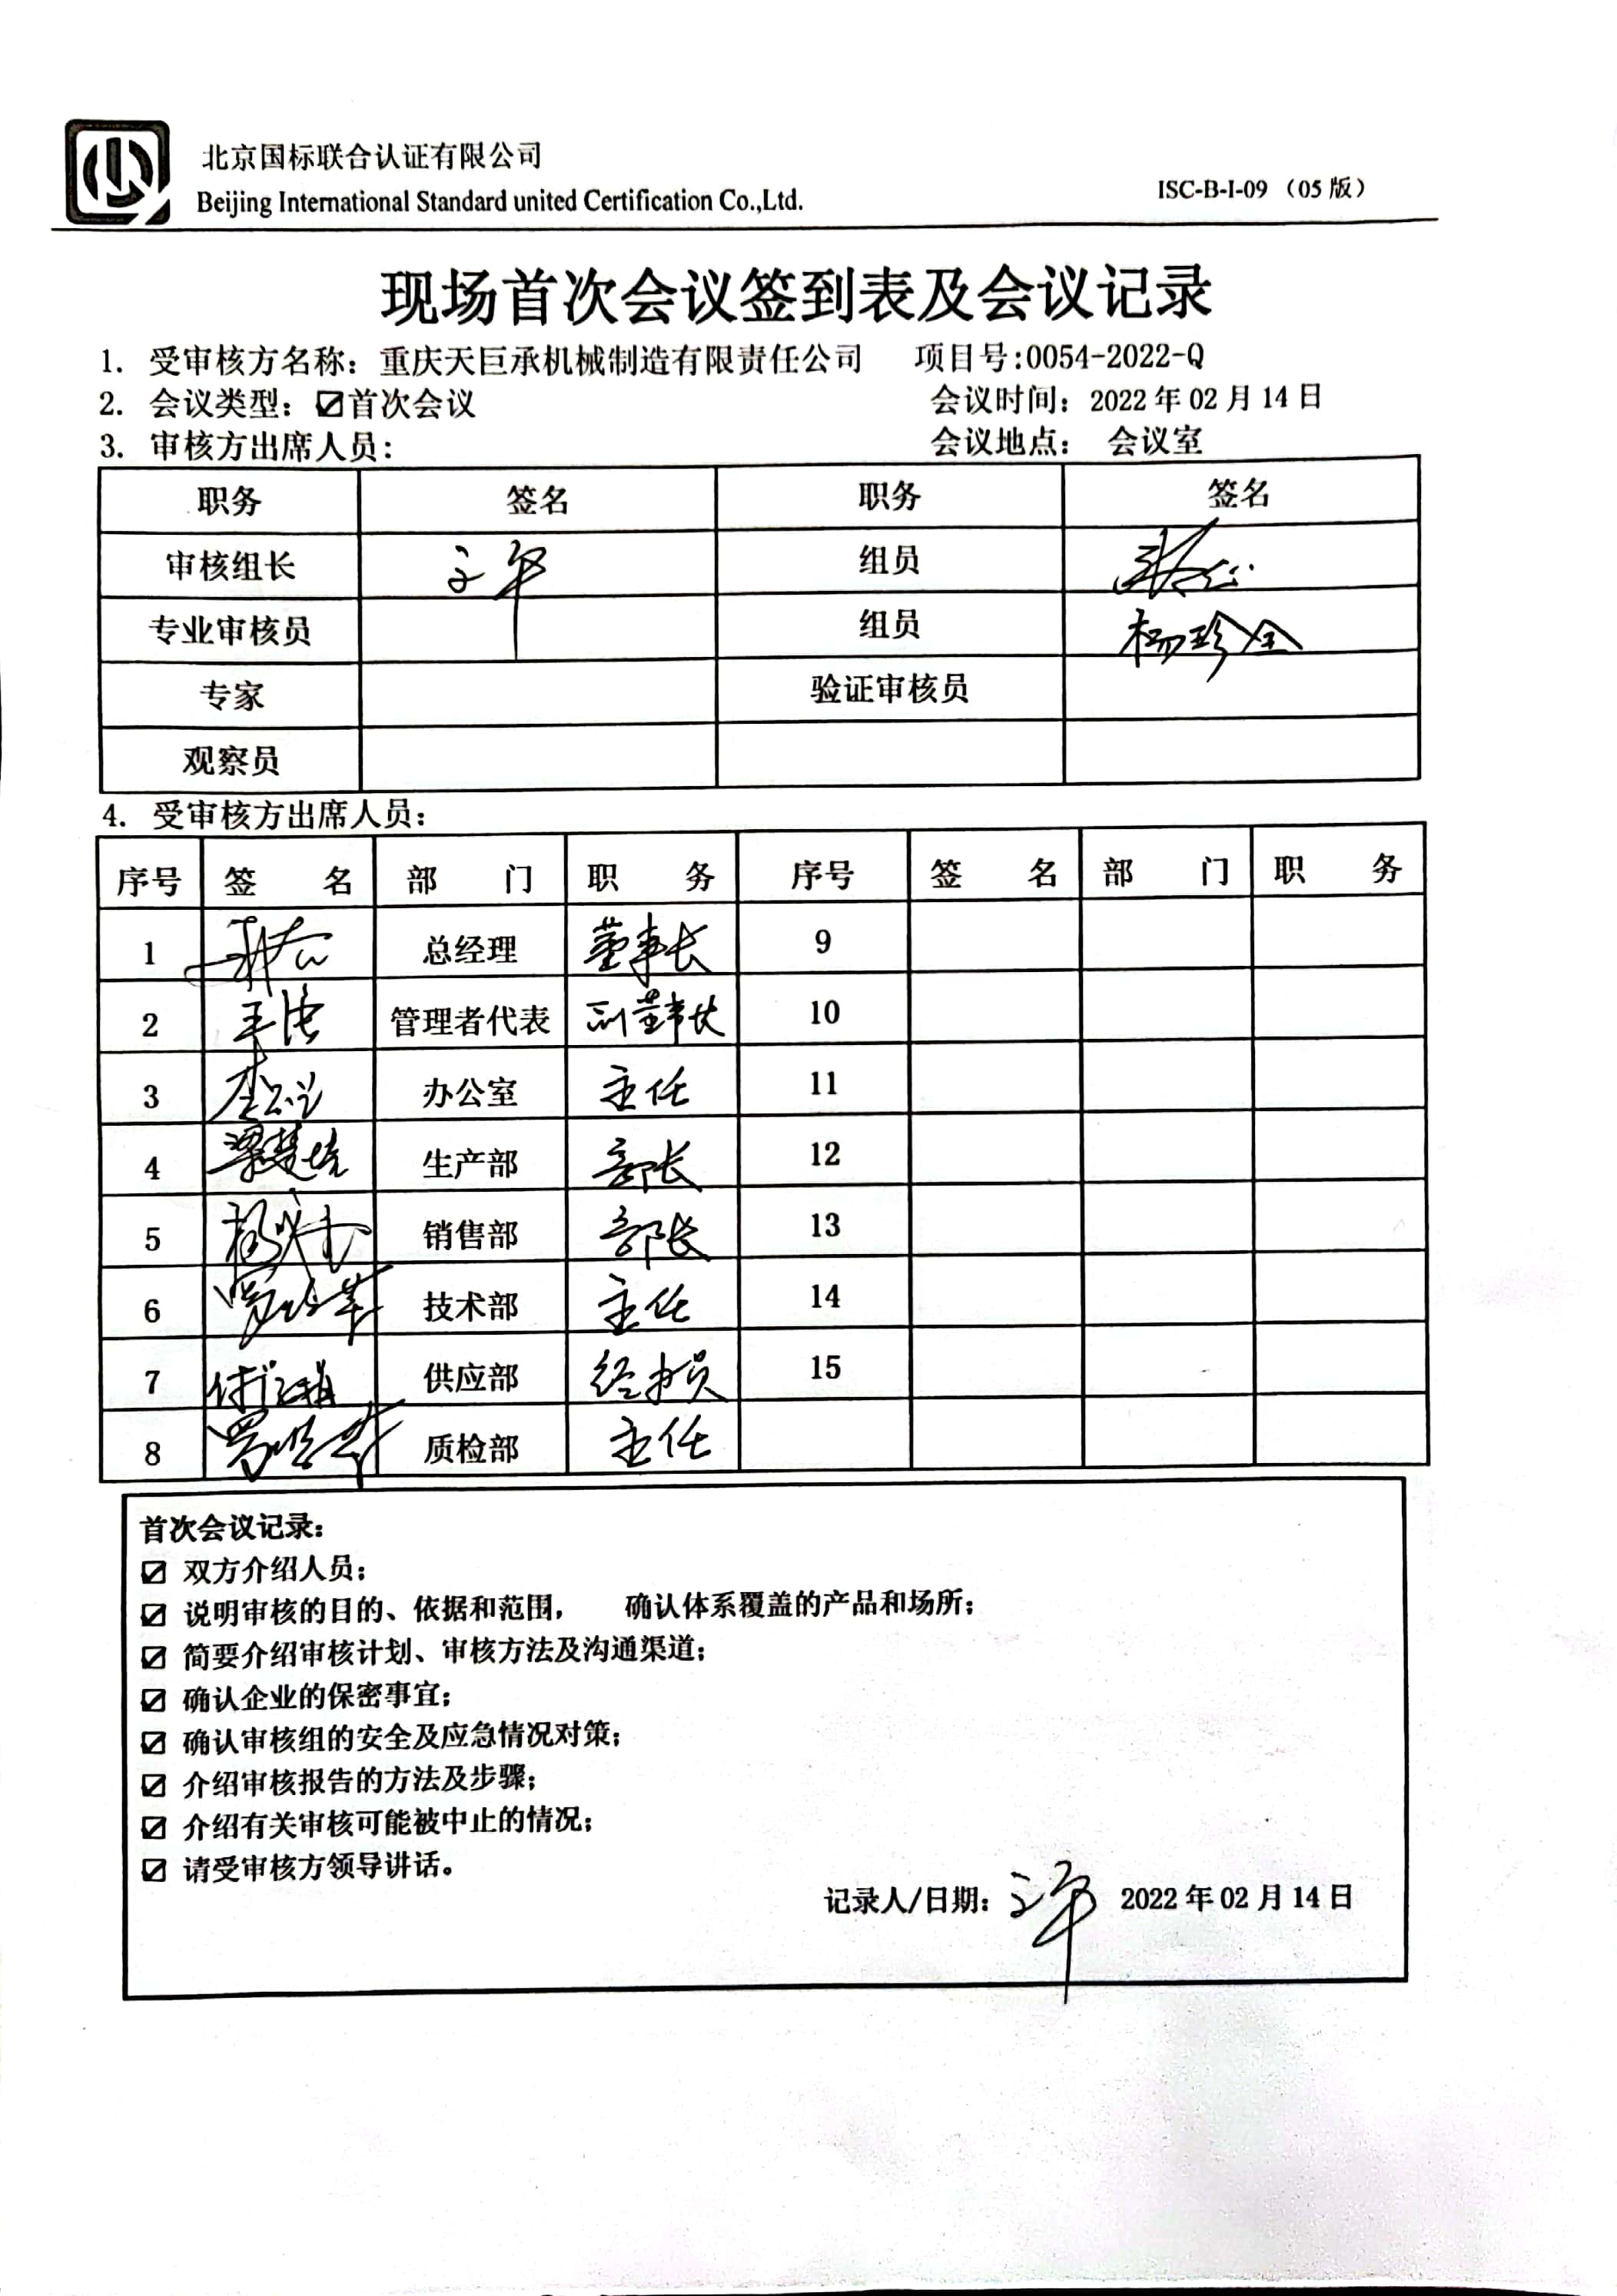 北京国标联合认证有限公司
Beijing International Standard united Certification Co.,Ltd.
ISC-B-I-09（05版）
现场首次会议签到表及会议记录
1. 受审核方名称：重庆天巨承机械制造有限责任公司 项目号:0054-2022-Q
2. 会议类型：☑首次会议 会议时间：2022年02月14日
3. 审核方出席人员： 会议地点： 会议室
职务 签名 职务 签名
审核组长 组员
专业审核员 组员 杨珍全
专家 验证审核员
观察员
4. 受审核方出席人员：
序号 签 名 部 门 职 务 序号 签 名 部 门 职 务
1 总经理 董事长 9
2 管理者代表 副董事长 10
3 办公室 主任 11
4 生产部 部长 12
5 销售部 部长 13
6 技术部 主任 14
7 供应部 经办员 15
8 质检部 主任
首次会议记录：
☑ 双方介绍人员；
☑ 说明审核的目的、依据和范围， 确认体系覆盖的产品和场所；
☑ 简要介绍审核计划、审核方法及沟通渠道；
☑ 确认企业的保密事宜；
☑ 确认审核组的安全及应急情况对策；
☑ 介绍审核报告的方法及步骤；
☑ 介绍有关审核可能被中止的情况；
☑ 请受审核方领导讲话。
记录人/日期： 2022年02月14日